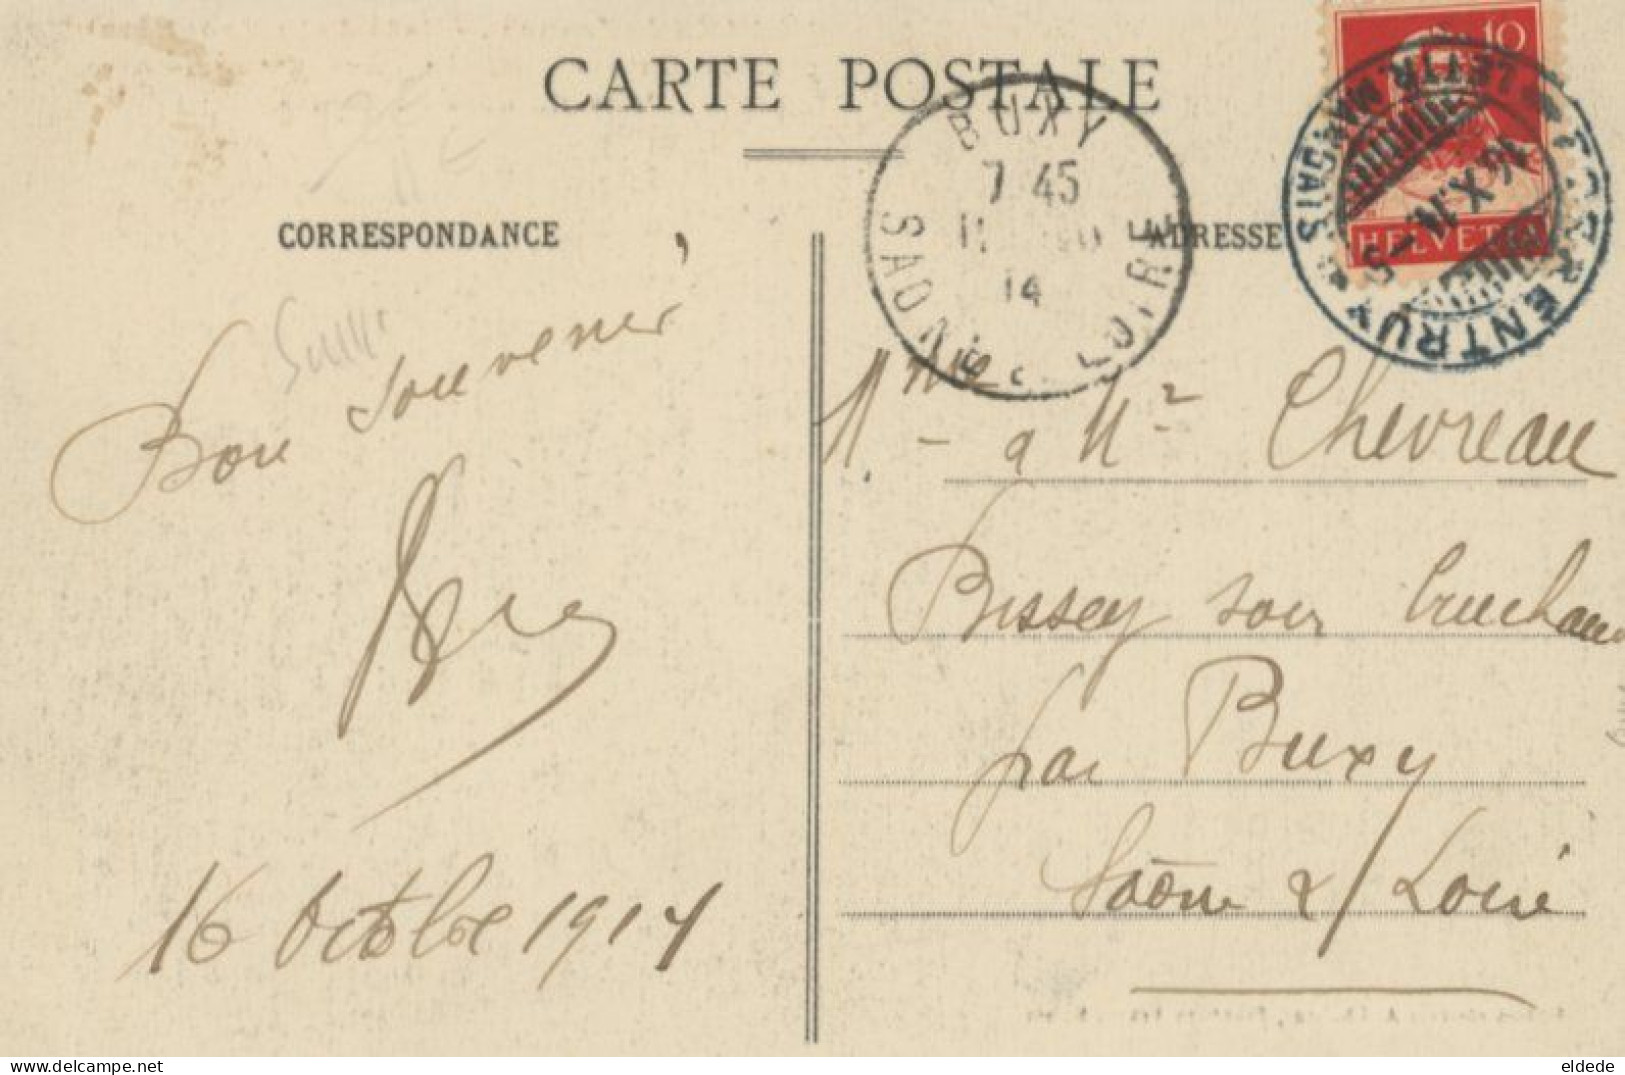 CARTE POSTALE
CORRESPONDANCE
ADRESSE
BUXY
7 45
11
14
SAONE-ET-LOIRE
10
HELVETIA
PORRENTRUY
LETTR. MANDATS
16.X.14-5
Bon souvenir
16 Octobre 1914
M. me - & Mr Chevreau
Bissey sous Cruchaud
par Buxy
Saône & Loire
eldede